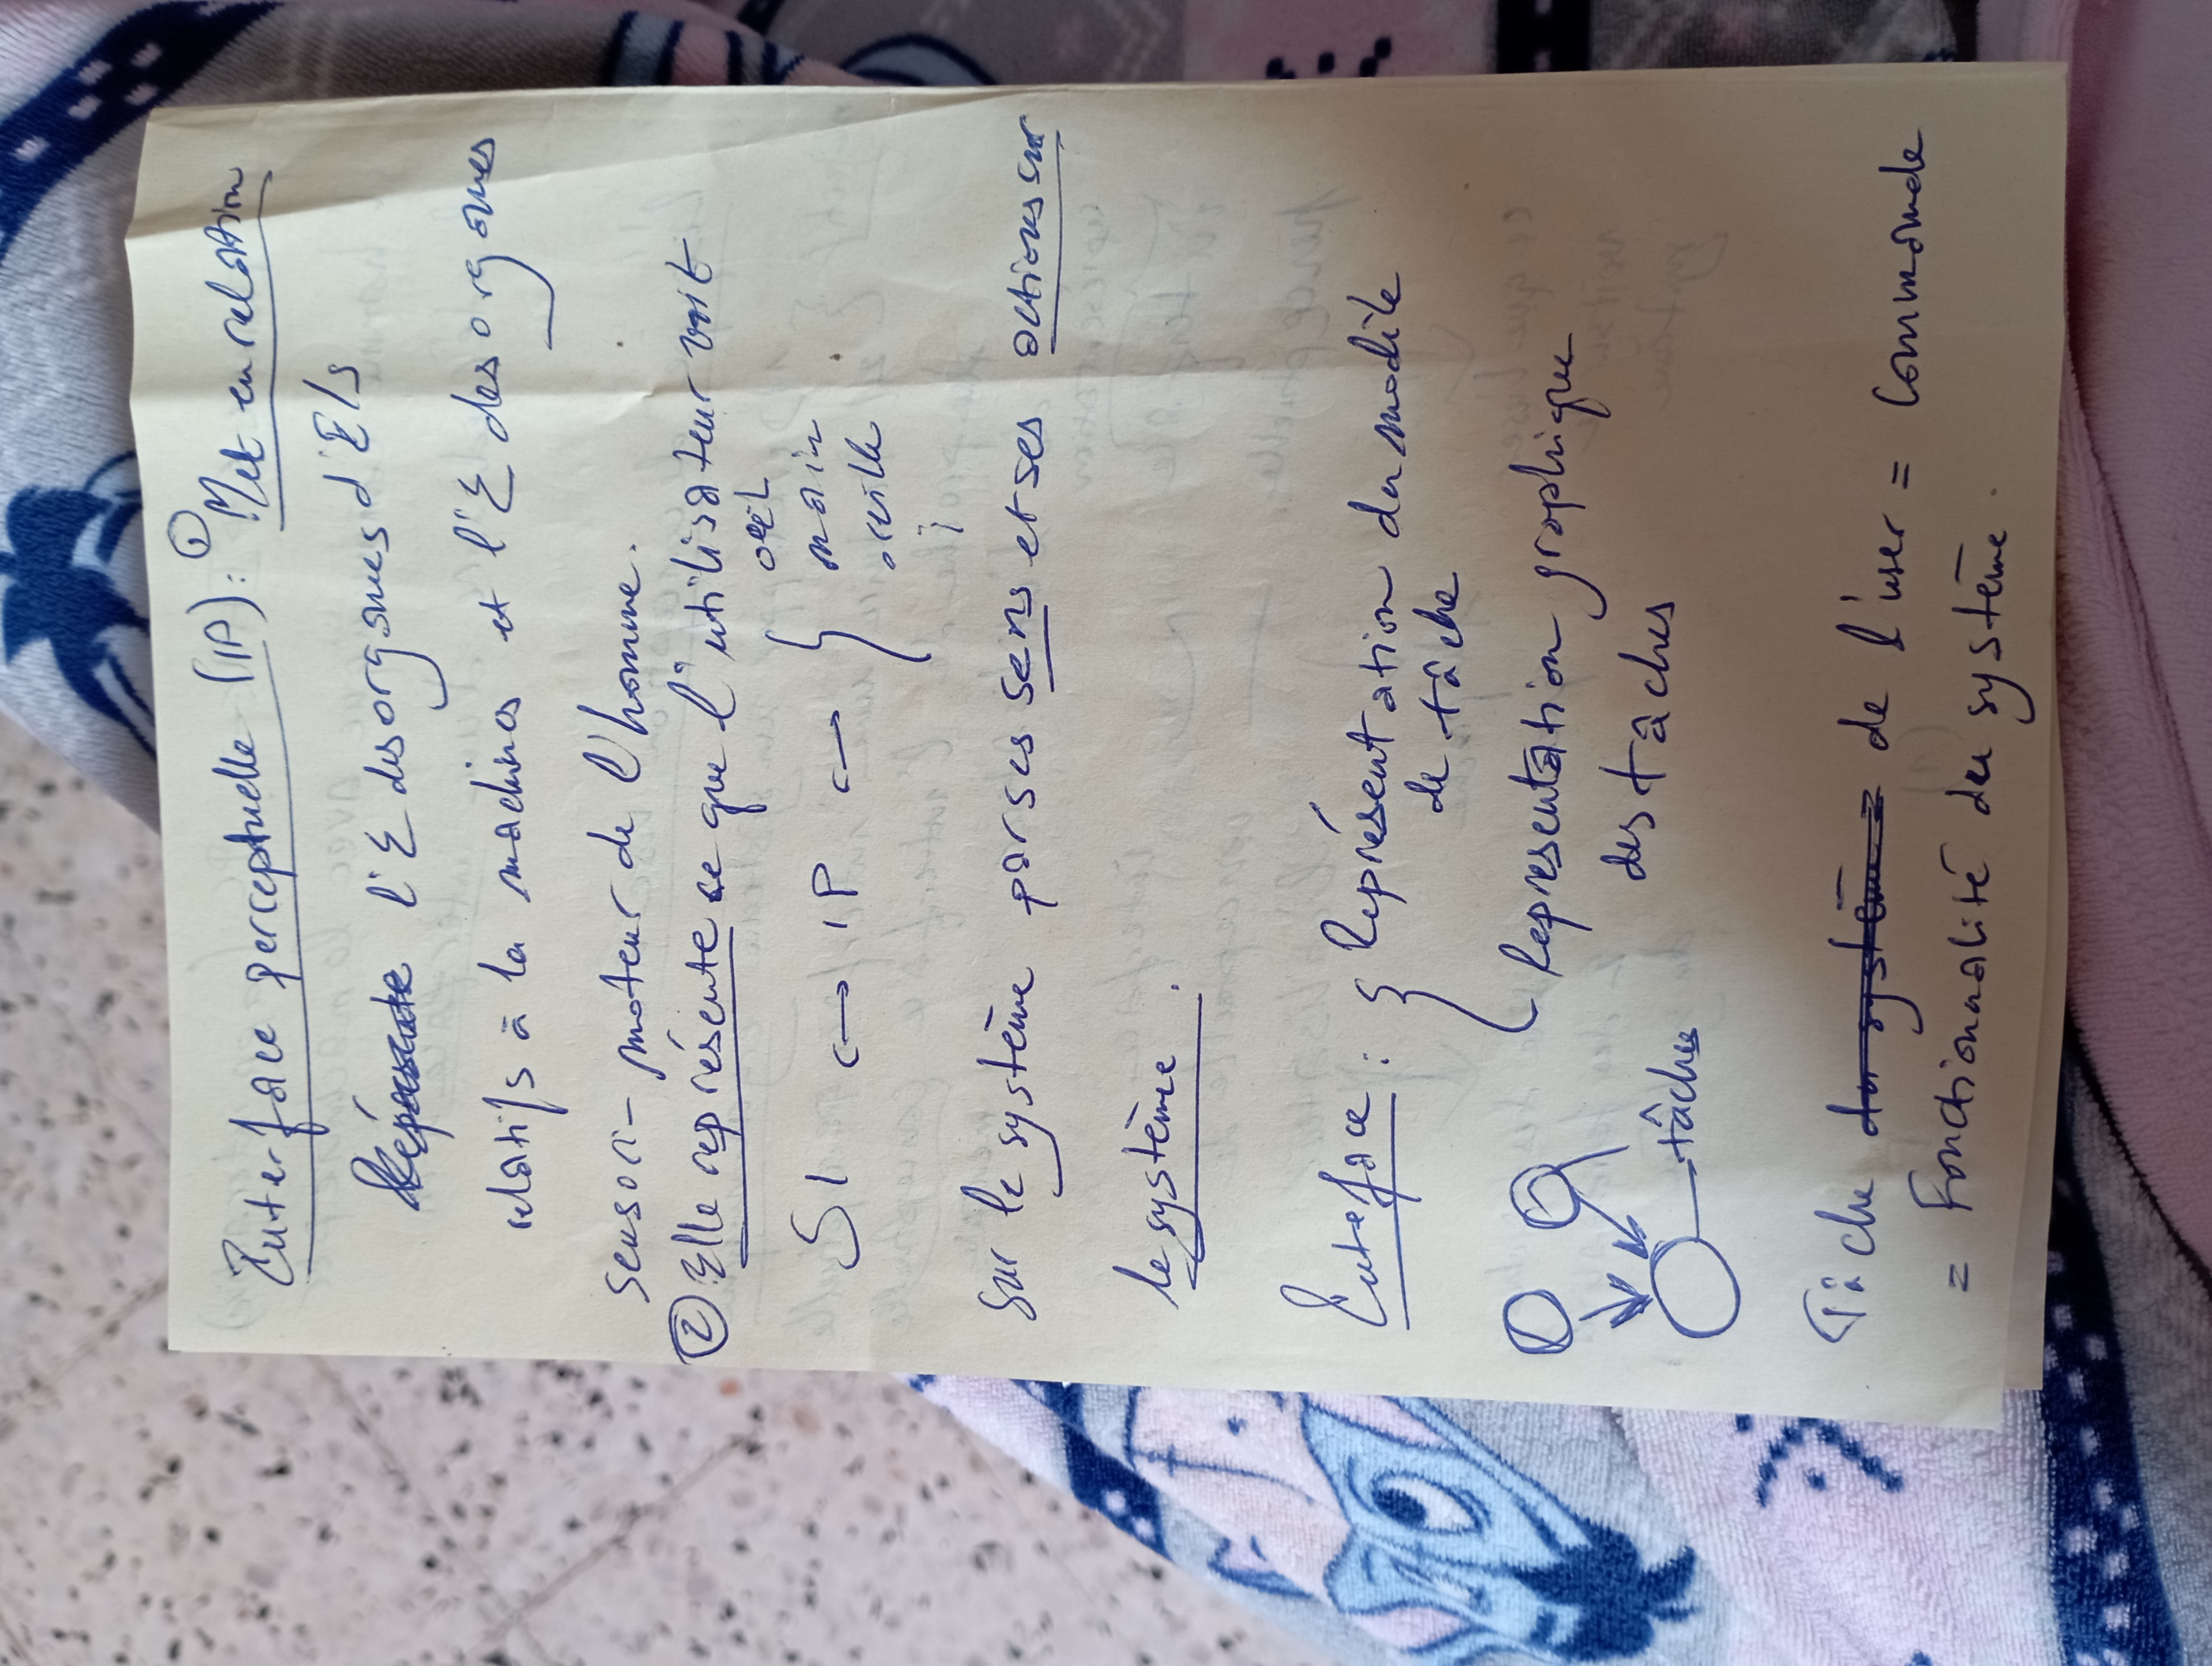 Interface perceptuelle (IP): ① Met en relation
l'Σ des organes d'E/S
relatifs à la machines et l'Σ des organes
sensori-moteur de l'homme.
② Elle représente ce que l'utilisateur voit
SI ↔ IP ↔ { oeil
main
oreille
⋮
sur le système par ses sens et ses actions sur
le système.
Inteface : { Représentation du modèle
de tâche
Representation graphique
des tâches
tâches
Tâche du système = de l'user = Commande
= Fonctionnalité du système.